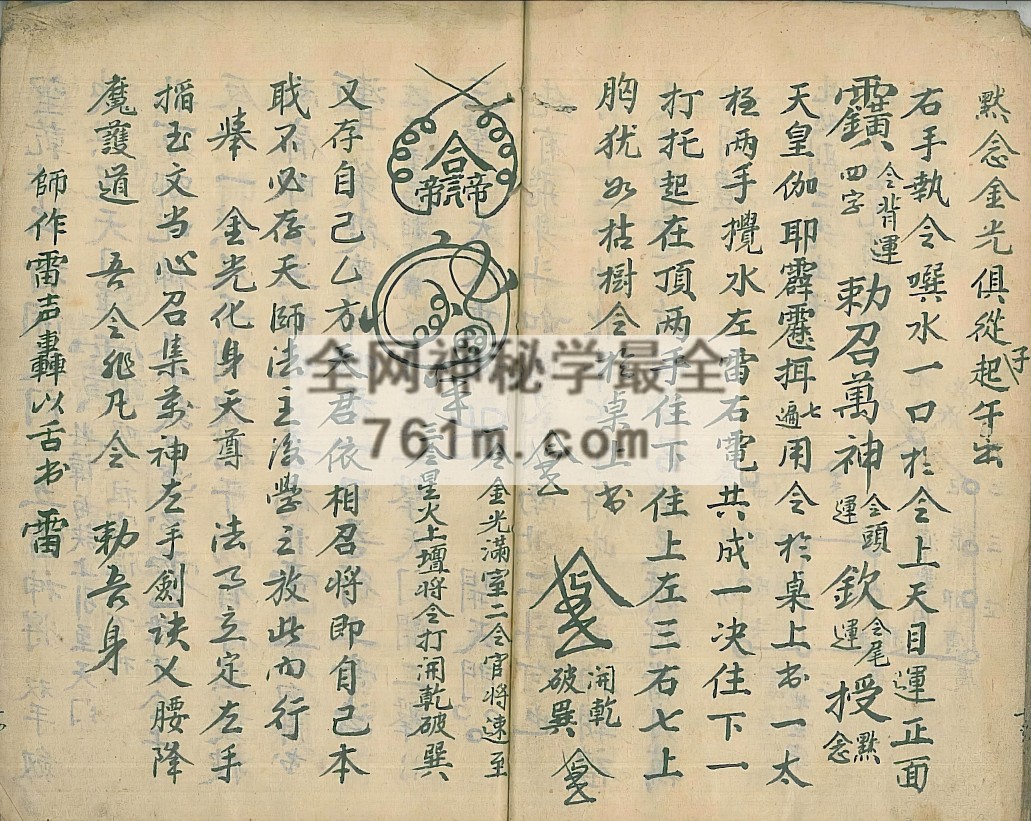 黙念金光俱從起午出
右手執令噀水一口於令上天目運正面
令背運四字 勅召萬神 令頭運 欽 令尾運 授 黙念
天皇伽耶霹靂 七遍 用令於桌上书一太
极两手攪水左雷右電共成一决住下一
打托起在頂两手住下住上左三右七上
胸犹如枯樹令於桌上书
開乾破巽
合
一令金光满室二令官将速至
三星火上壇将令打開乾破巽
又存自己乙方天君依相召将即自己本
戝不必存天師法主後學之放此而行
舉 金光化身天尊 法乃立定左手
掐玉文当心召集萬神左手劍訣乂腰降
魔護道 吾令非凡令 勅吾身
師作雷声轟以舌书雷
全网神秘学最全
761m.com